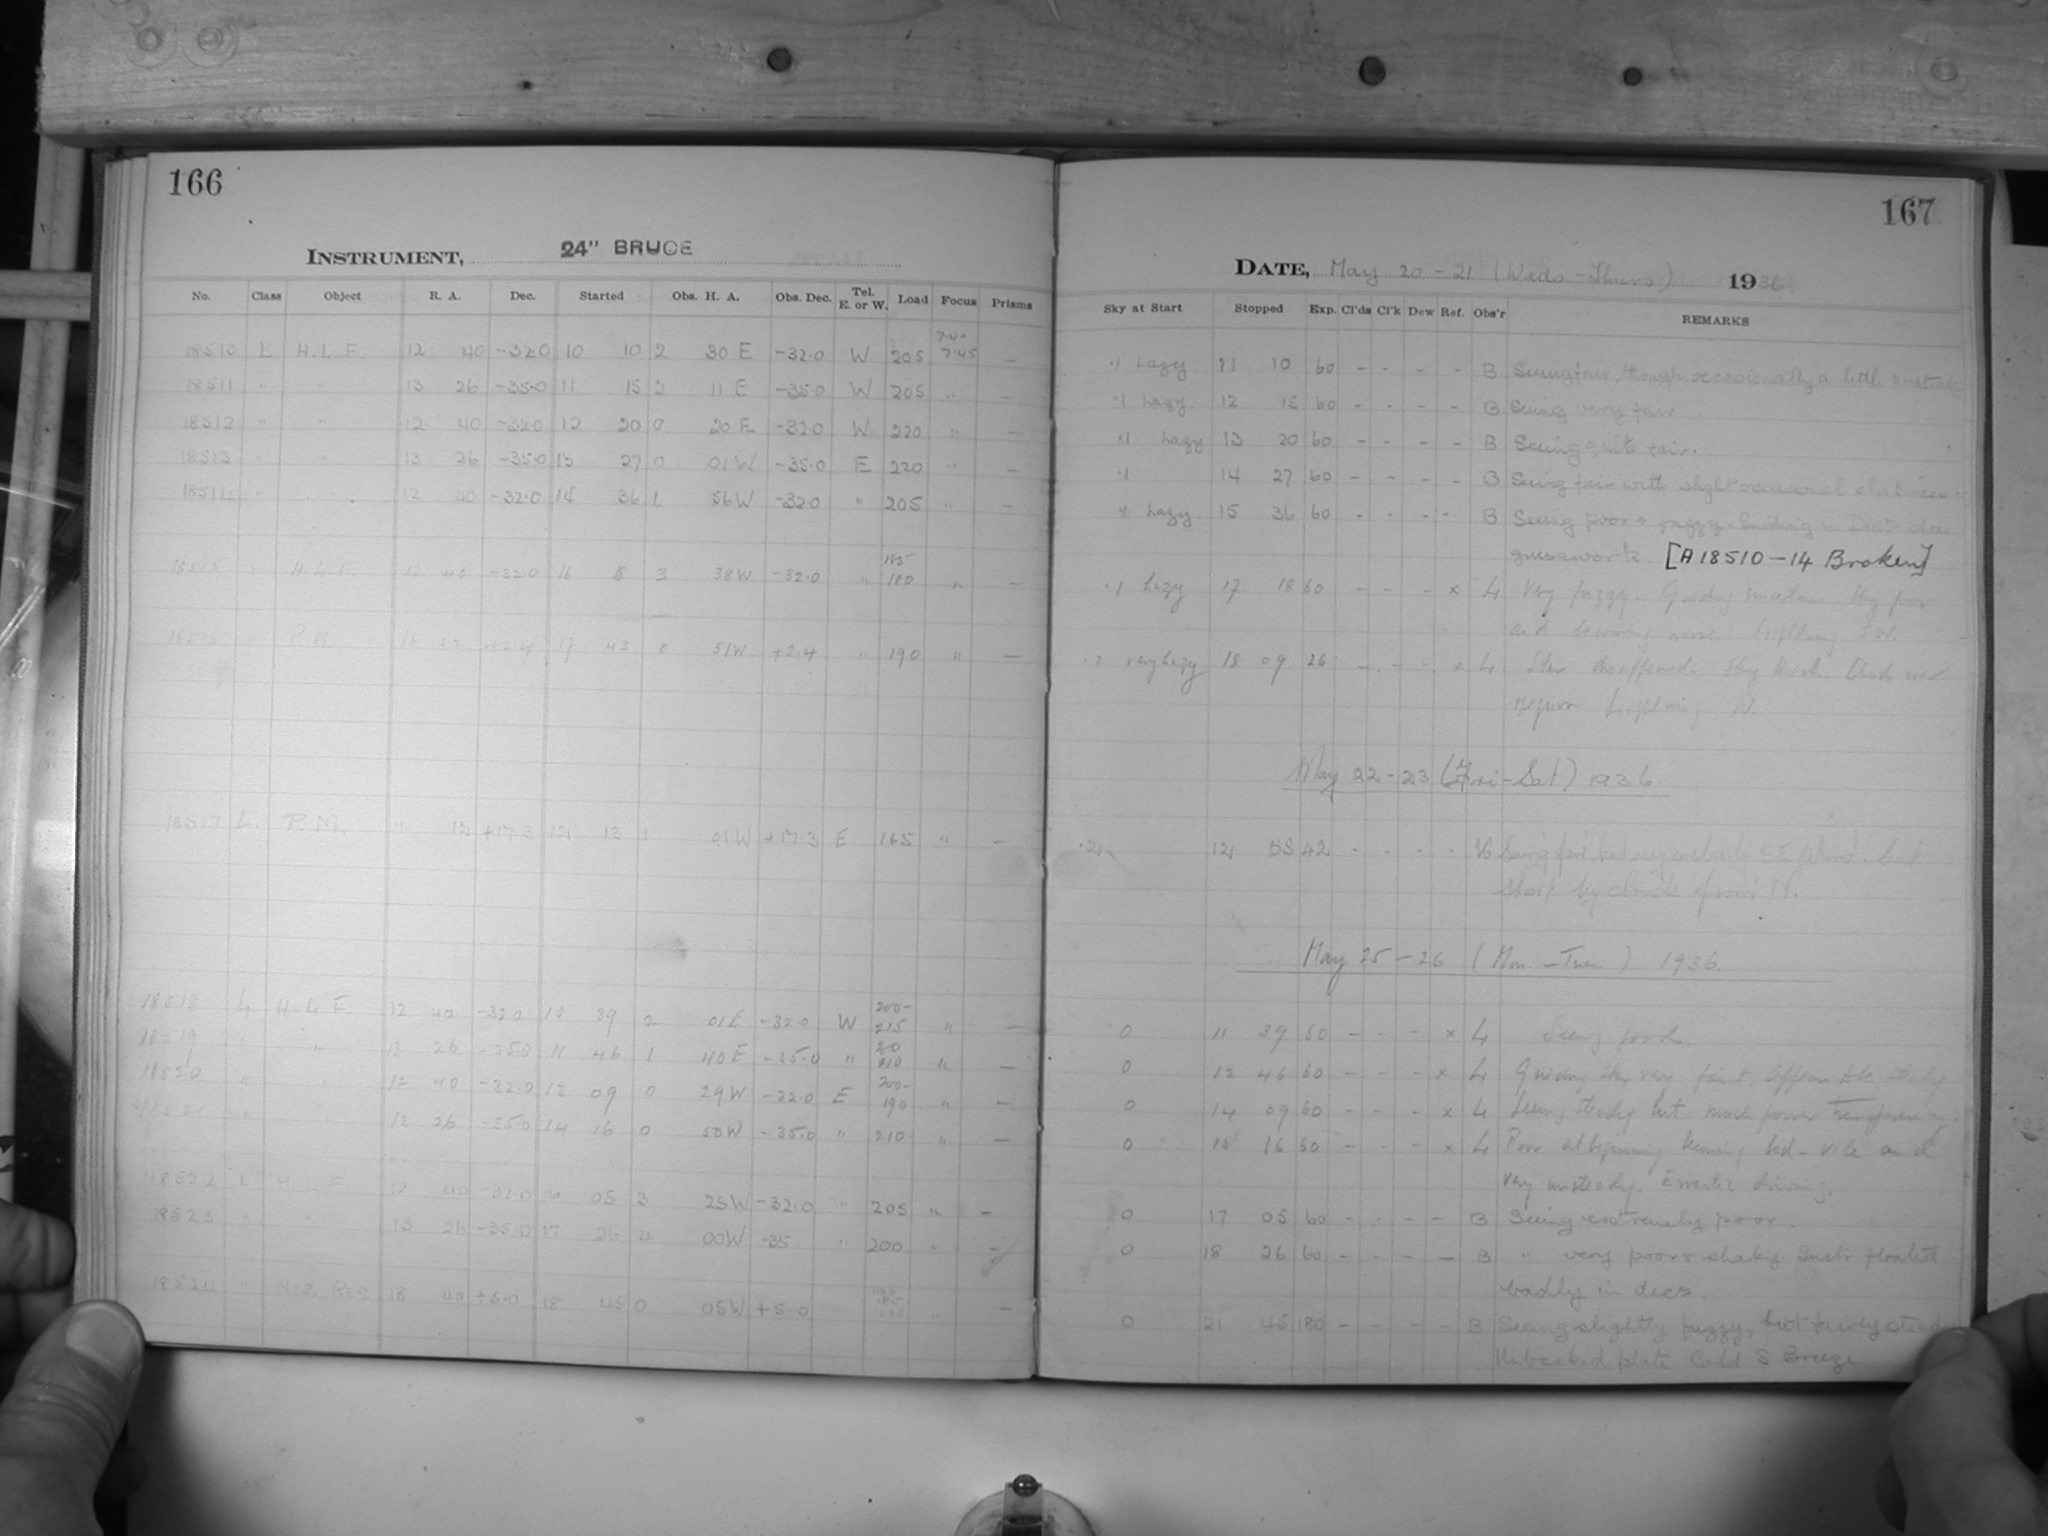 166
INSTRUMENT, 24" BRUCE
No. Class Object R. A. Dec. Started Obs. H. A. Obs. Dec. Tel. E. or W. Load Focus Prisms
7.40
18510 L H.L.F. 12 40 -32.0 10 10 2 30 E -32.0 W 205 7.45 —
18511 " " 13 26 -35.0 11 15 2 11 E -35.0 W 205 " —
18512 " " 12 40 -32.0 12 20 0 20 E -32.0 W 220 " —
18513 " " 13 26 -35.0 13 27 0 01 W -35.0 E 220 " —
18514 " " 12 40 -32.0 14 36 1 56 W -32.0 " 205 " —
185
18515 " H.L.F. 12 40 -32.0 16 18 3 38 W -32.0 " 180 " —
18516 " P.M. 52 +2.4 17 43 0 51 W +2.4 " 190 " —
18517 L. P.M. 12 +17.3 12 13 1 01 W +17.3 E 165 " —
200-
18518 L H.L.F. 12 40 -32.0 10 39 2 01 E -32.0 W 215 " —
18519 " " 13 26 -35.0 11 46 1 40 E -35.0 " 210 " —
200-
18520 " " 12 40 -32.0 13 09 0 29 W -32.0 E 190 " —
18521 " " 26 -35.0 14 16 0 50 W -35.0 " 210 " —
18522 L H.L.F. 12 40 -32.0 16 05 3 25 W -32.0 " 205 " —
18523 " " 13 26 -35.0 17 26 4 00 W -35 " 200 " —
18524 " 18 40 +5.0 18 45 0 05 W +5.0 " —
167
DATE, May 20 - 21 (Weds - Thurs) 1936
Sky at Start Stopped Exp. Cl'ds Cl'k Dew Ref. Obs'r REMARKS
.1 hazy 11 10 60 - - - - B Seeing fair, though occasionally a little unsteady
.1 hazy 12 15 60 - - - - B Seeing very fair
.1 hazy 13 20 60 - - - - B Seeing quite fair.
.1 14 27 60 - - - - B Seeing fair with slight occasional
.1 hazy. 15 36 60 - - - - B Seeing poor & fuzzy. Guiding in Dec.
guesswork [A 18510 - 14 Broken]
.1 hazy 17 18 60 - - - x L Very fuzzy. Guiding Sky poor
and becoming worse. Lightning
.2 very hazy 18 09 26 - - - x L Star disappeared. Sky thick. Clouds over
Lightning W.
May 22 - 23 (Fri - Sat) 1936.
.2 12 55 42 - - - - Seeing fair but very unsteady. Cut
short by clouds from W.
May 25 - 26 (Mon. - Tues.) 1936.
0 11 39 60 - - - x L Seeing good.
0 12 46 60 - - - x L Guiding star very faint.
0 14 09 60 - - - x L Seeing steady but much poorer transparency.
0 15 16 60 - - - x L Poor at beginning becoming bad - vile and
very unsteady. Erratic driving.
0 17 05 60 - - - - B Seeing extremely poor.
0 18 26 60 - - - - B " very poor & shaky Instr floated
badly in decs.
0 21 45 180 - - - - B Seeing slightly fuzzy, but fairly steady
Unbacked plate Cold S Breeze